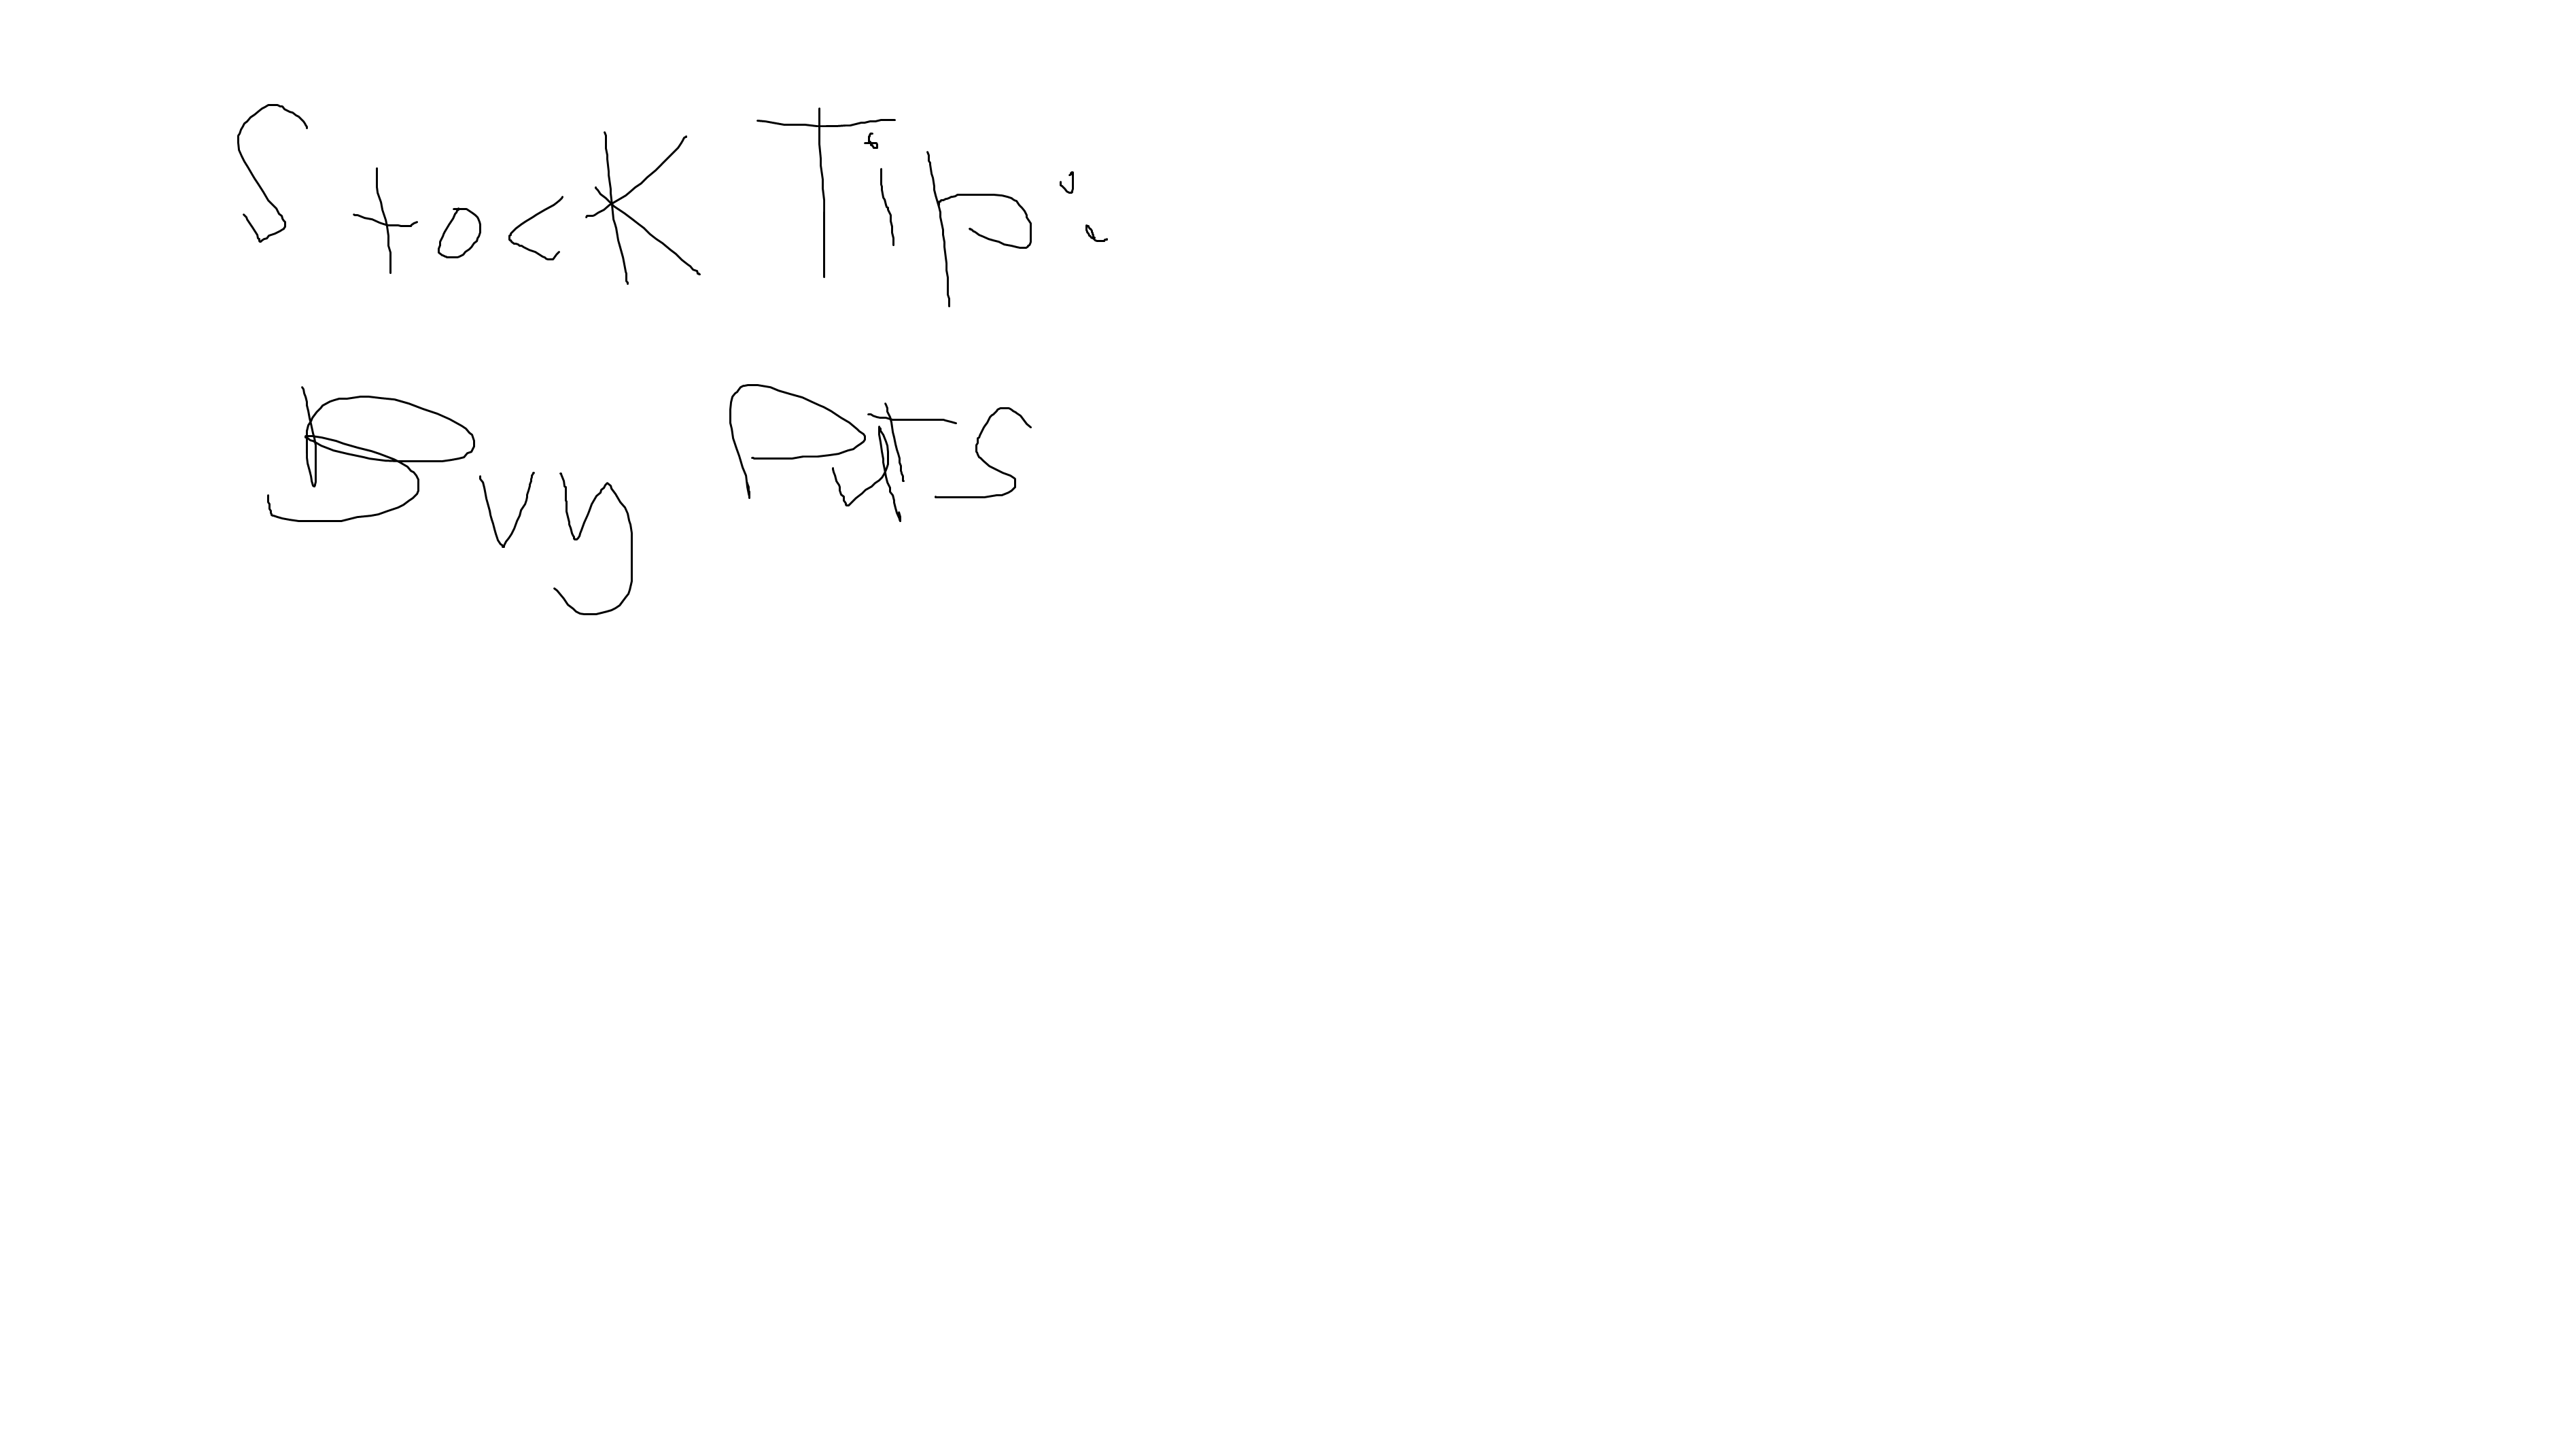 Stock Tip:
Buy Puts